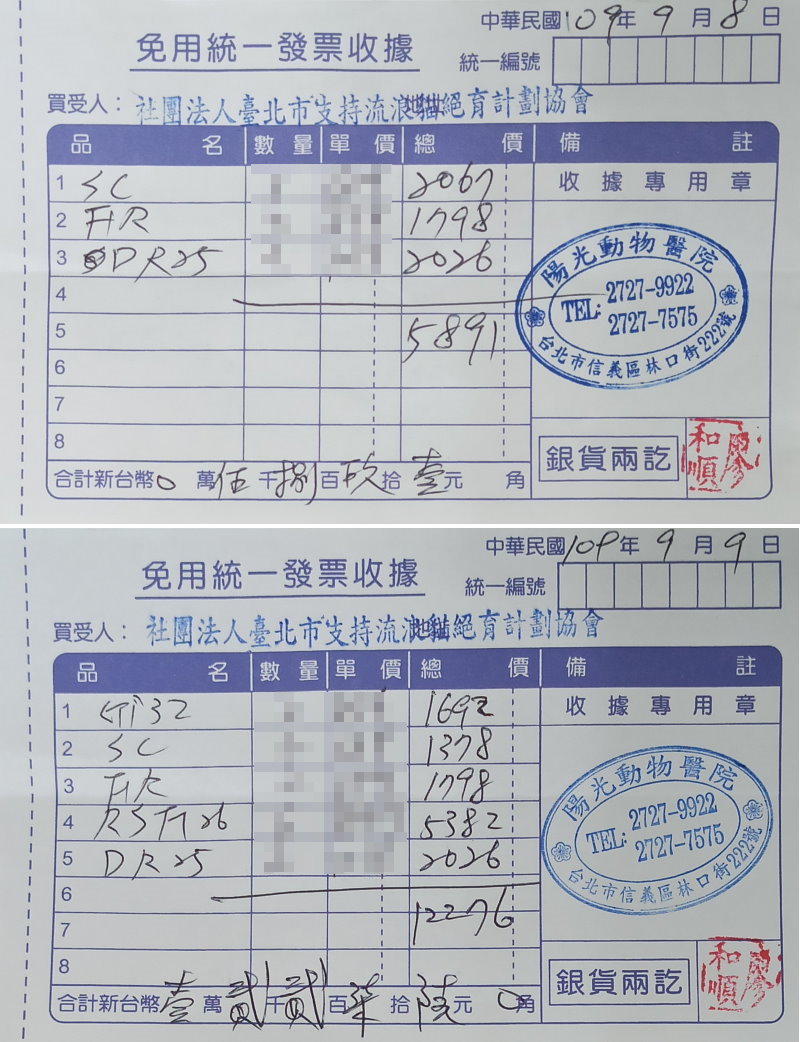 中華民國109年9月8日
免用統一發票收據
統一編號
買受人：社團法人臺北市支持流浪貓絕育計劃協會
品名 數量 單價 總價 備註
1 SC 2067 收據專用章
2 FIR 1798
3 DR25 2026
陽光動物醫院
4
TEL: 2727-9922
2727-7575
5 5891
台北市信義區林口街222號
6
7
8
銀貨兩訖
和順
廖
合計新台幣0萬伍千捌百玖拾壹元角
中華民國109年9月9日
免用統一發票收據
統一編號
買受人：社團法人臺北市支持流浪貓絕育計劃協會
品名 數量 單價 總價 備註
1 32 1692 收據專用章
2 SC 1378
3 FIR 1798
陽光動物醫院
4 26 5382
TEL: 2727-9922
2727-7575
5 DR25 2026
台北市信義區林口街222號
6
7 12276
8
銀貨兩訖
和順
廖
合計新台幣壹萬貳千貳百柒拾陸元0角